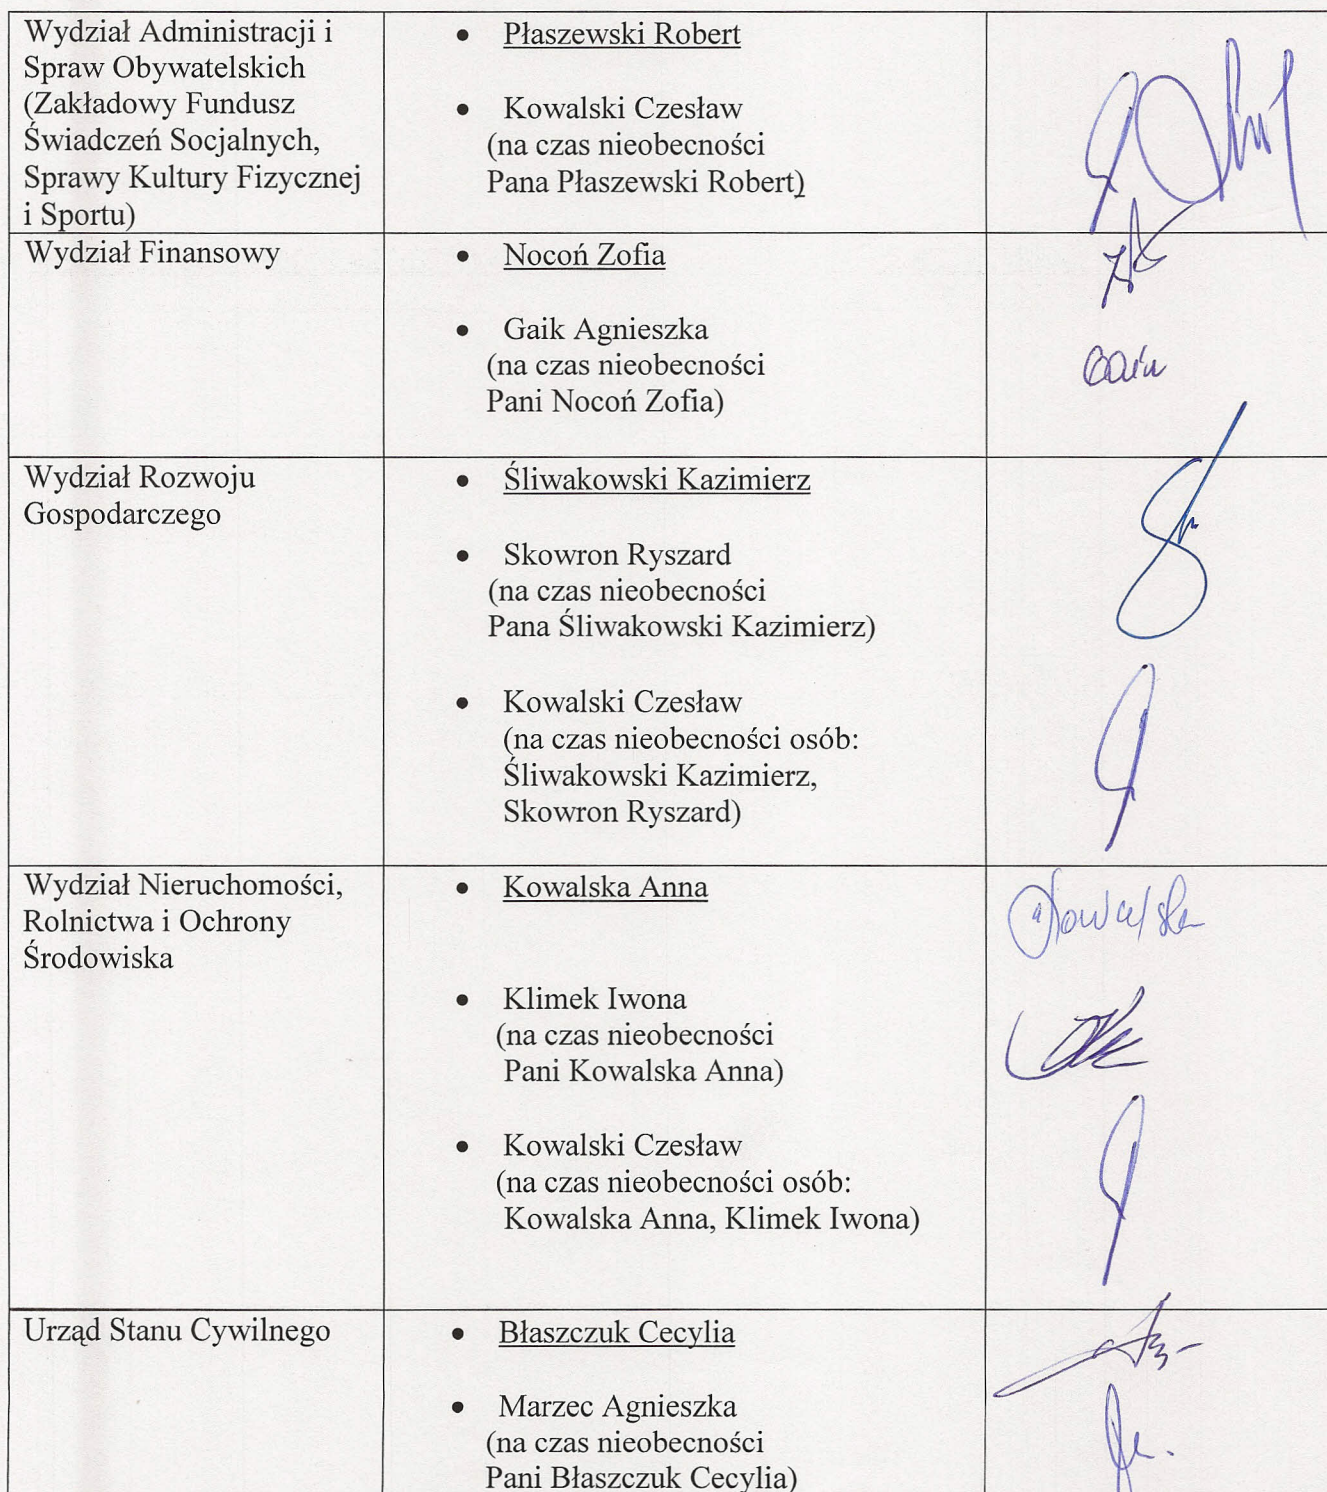 Wydział Administracji i
Spraw Obywatelskich
(Zakładowy Fundusz
Świadczeń Socjalnych,
Sprawy Kultury Fizycznej
i Sportu)
• Płaszewski Robert
• Kowalski Czesław
(na czas nieobecności
Pana Płaszewski Robert)
Wydział Finansowy
• Nocoń Zofia
• Gaik Agnieszka
(na czas nieobecności
Pani Nocoń Zofia)
Wydział Rozwoju
Gospodarczego
• Śliwakowski Kazimierz
• Skowron Ryszard
(na czas nieobecności
Pana Śliwakowski Kazimierz)
• Kowalski Czesław
(na czas nieobecności osób:
Śliwakowski Kazimierz,
Skowron Ryszard)
Wydział Nieruchomości,
Rolnictwa i Ochrony
Środowiska
• Kowalska Anna
Kowalska
• Klimek Iwona
(na czas nieobecności
Pani Kowalska Anna)
• Kowalski Czesław
(na czas nieobecności osób:
Kowalska Anna, Klimek Iwona)
Urząd Stanu Cywilnego
• Błaszczuk Cecylia
• Marzec Agnieszka
(na czas nieobecności
Pani Błaszczuk Cecylia)